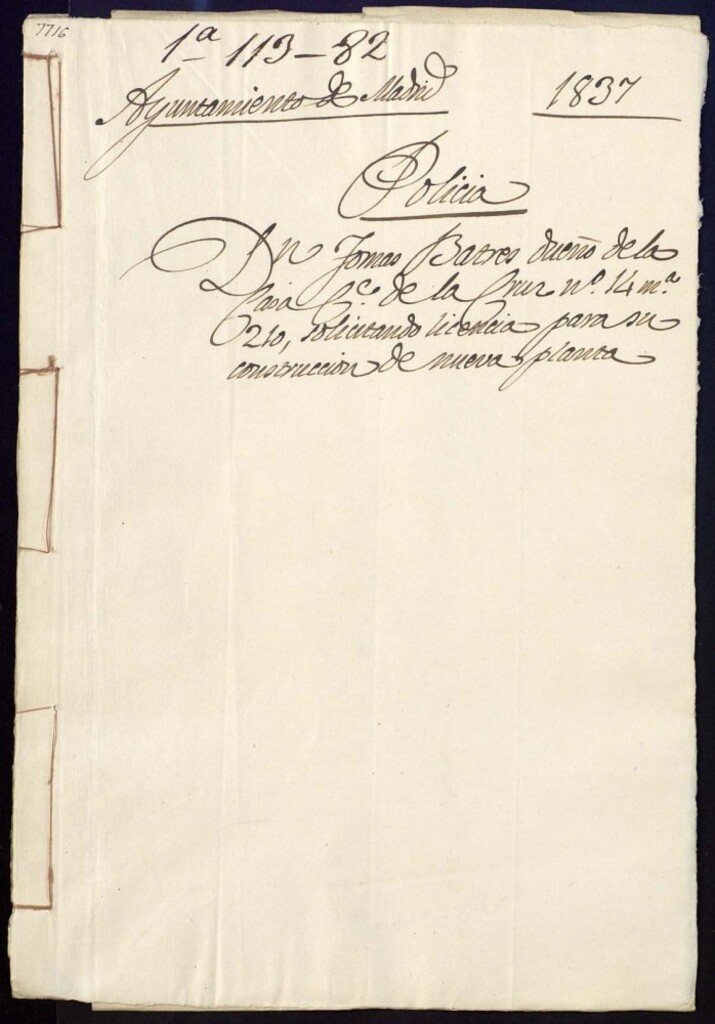 7716
1ª 113-82
Ayuntamiento de Madrid
1837
Policia
Dn Tomas Batres dueño de la
Casa Ce. de la Cruz nº. 14 mª.
210, solicitando licencia para su
construccion de nueva planta